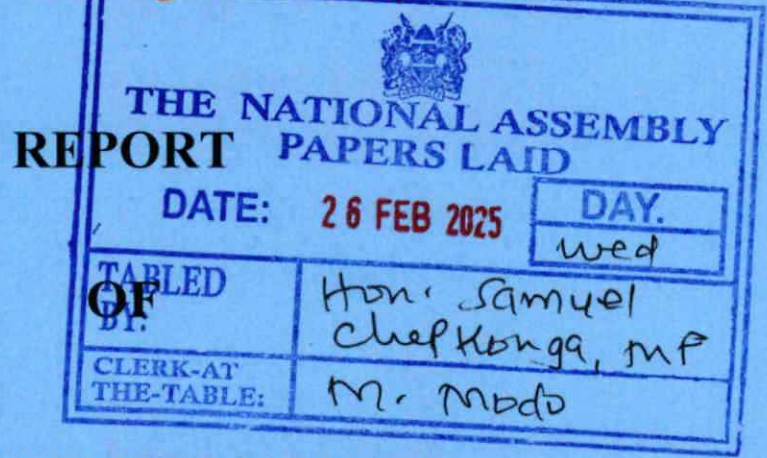 THE NATIONAL ASSEMBLY
REPORT PAPERS LAID
DATE: 26 FEB 2025 DAY.
wed
TABLED
OF
BY:
Hon. Samuel
Chepkonga, MP
CLERK-AT
THE-TABLE:
M. Modo